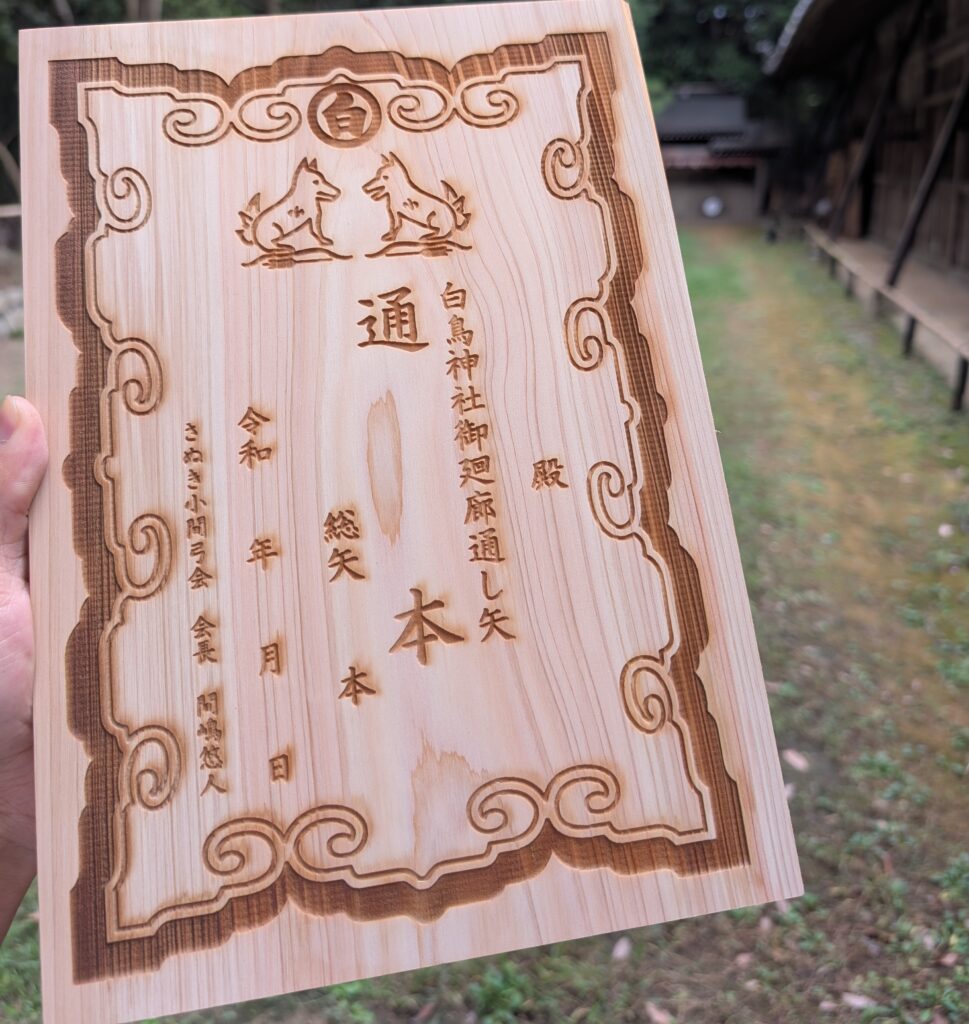 白
殿
白鳥神社御廻廊通し矢
通 本
総矢 本
令和 年 月 日
さぬき小間弓会 会長 間嶋悠人